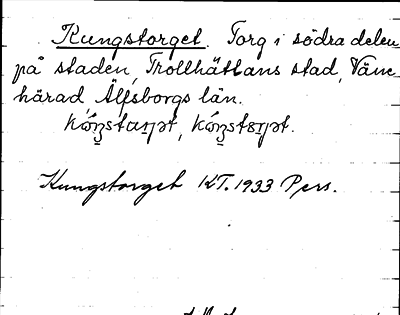 Kungstorget. Torg i södra delen
på staden, Trollhättans stad, Väne
härad, Älfsborgs län.
Kungstorget KT. 1933 Pers.